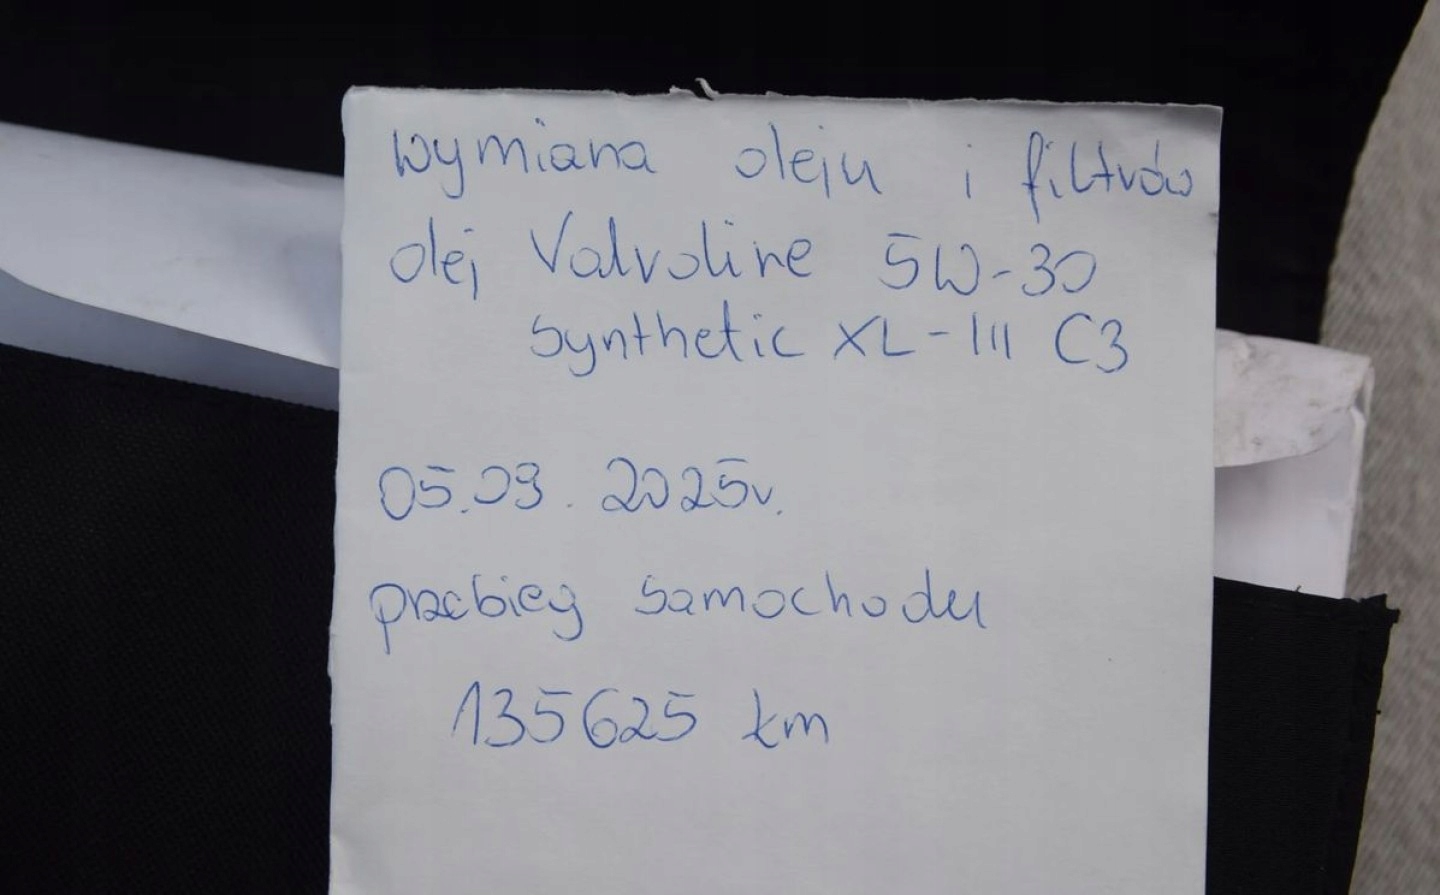 wymiana oleju i filtrów
olej Valvoline 5W-30
Synthetic XL-III C3
05.09.2025r.
przebieg samochodu
135625 km